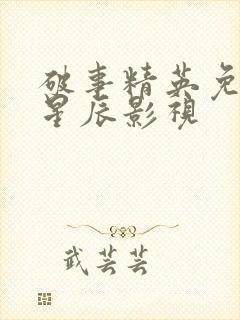 破事精英免
星辰影视
武芸芸